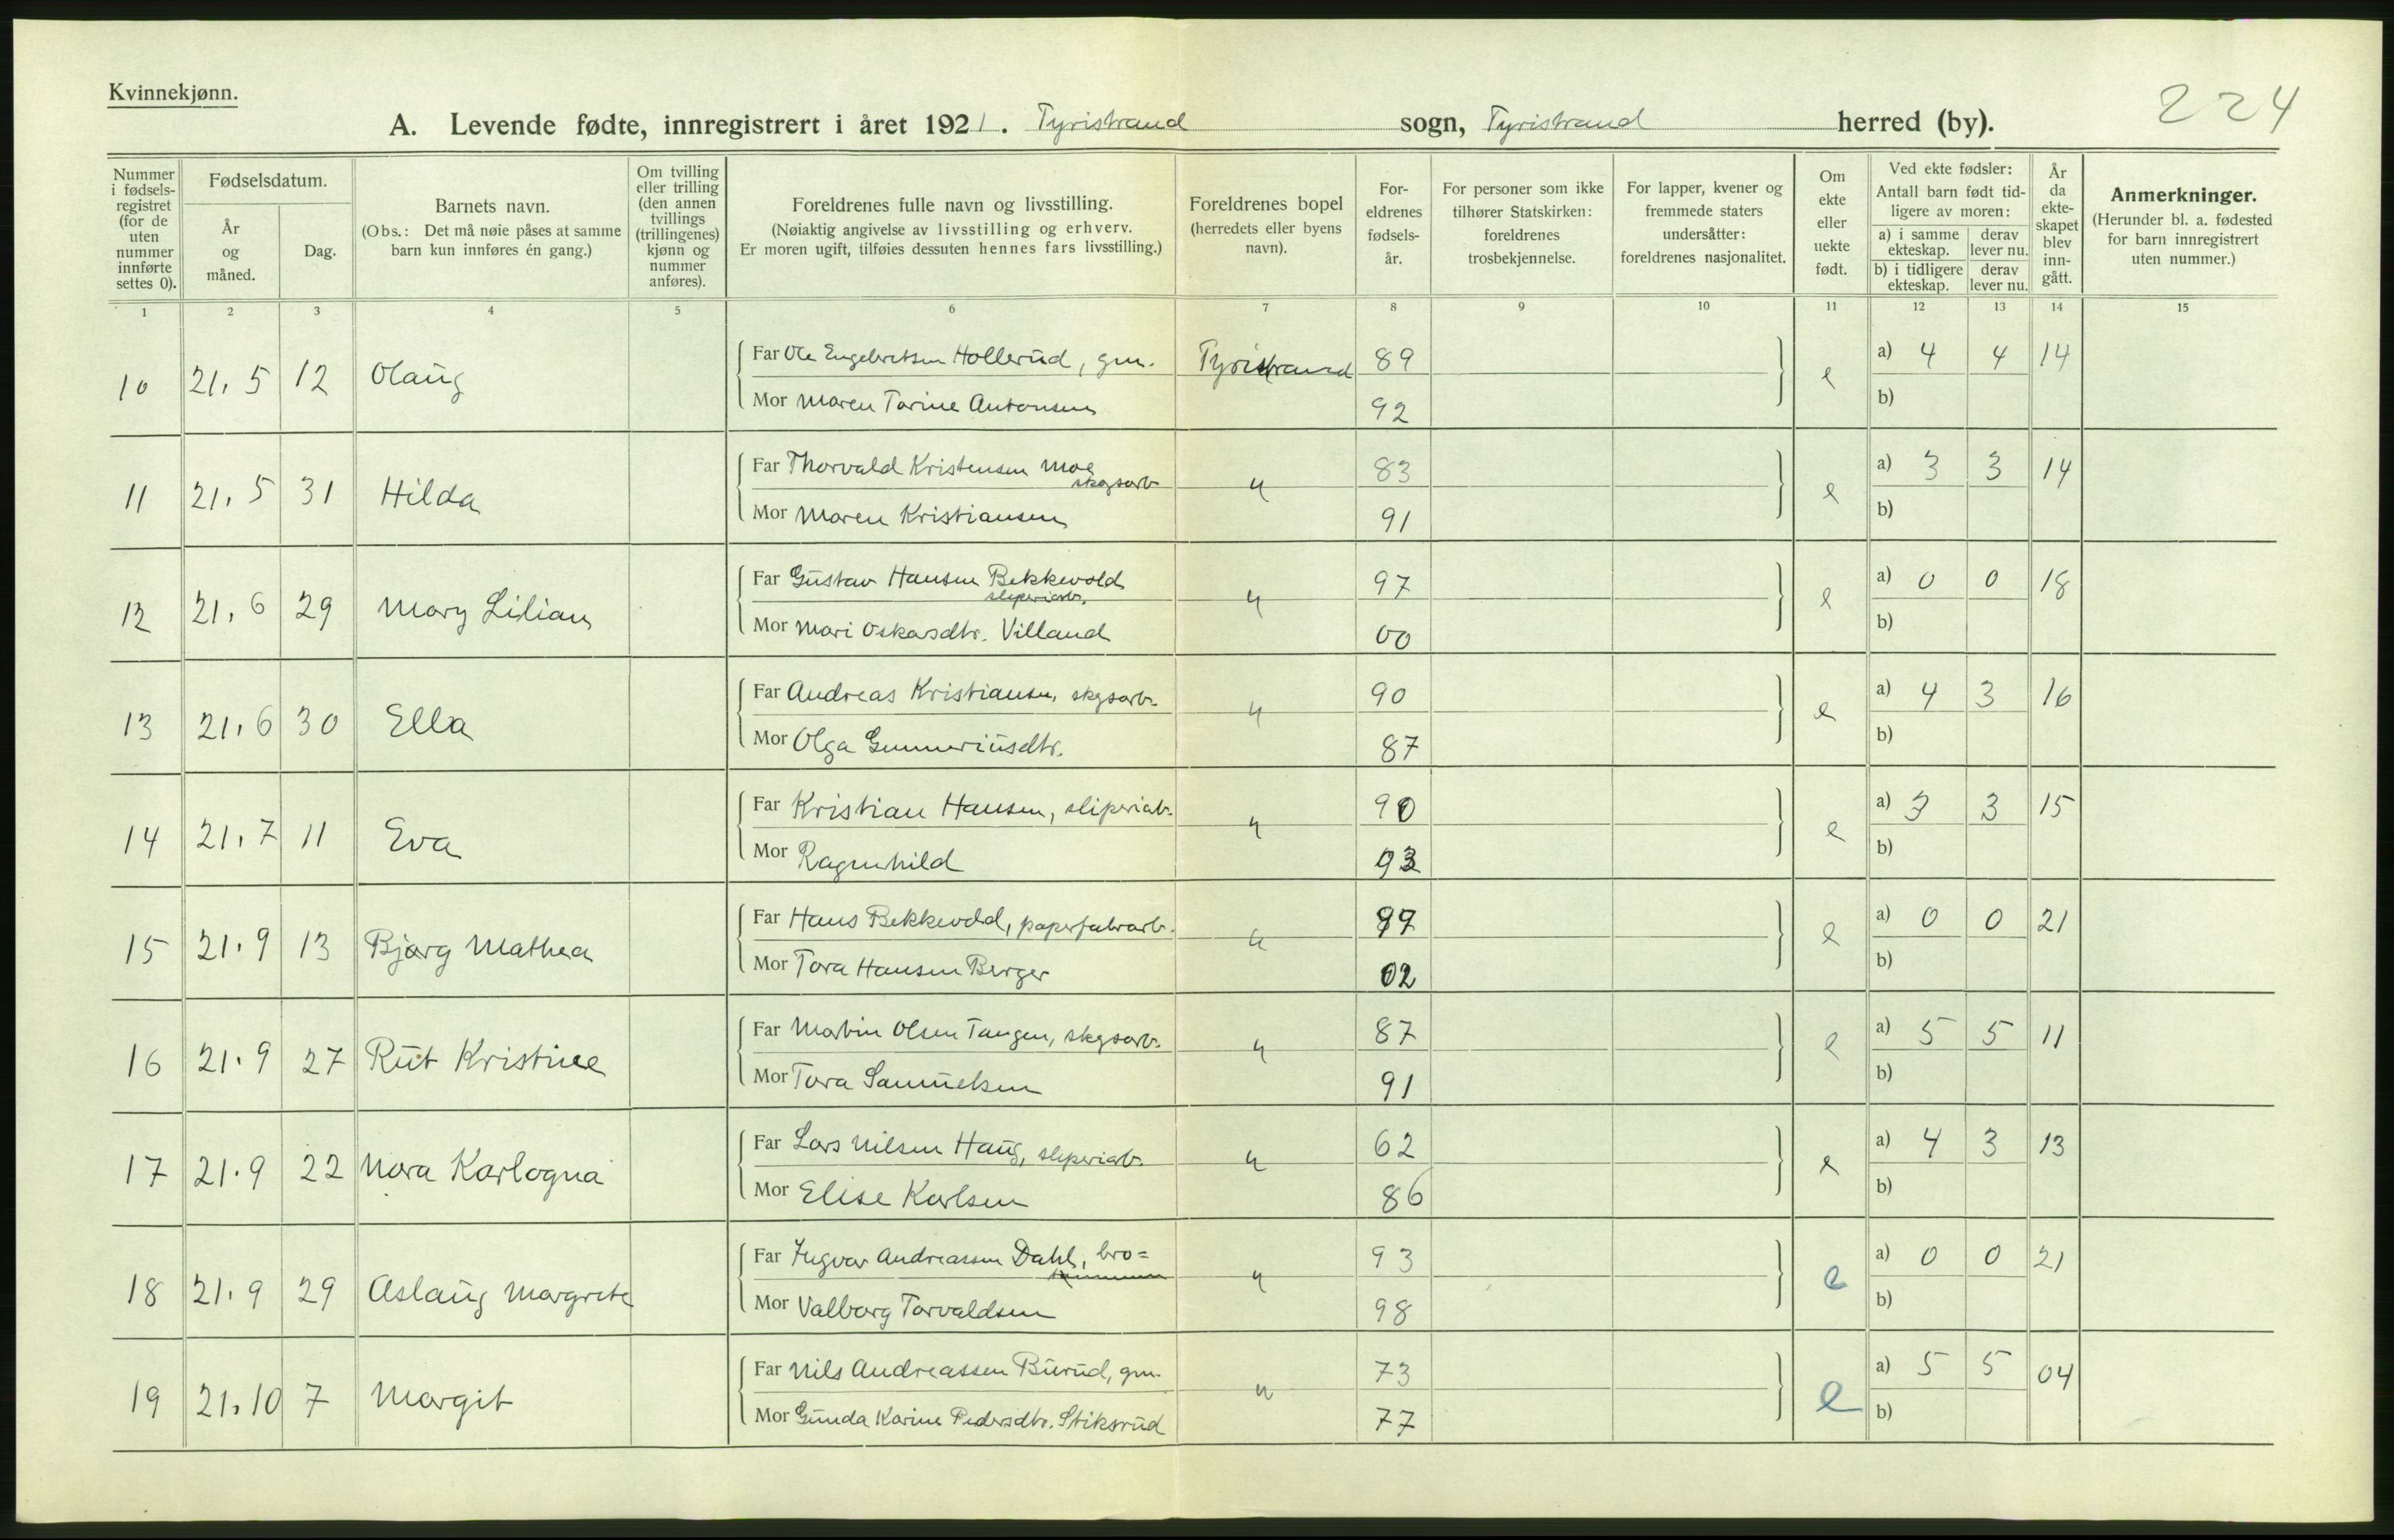 Kvinnekjønn.
224
A. Levende fødte, innregistrert i året 1921. Tyristrand sogn, Tyristrand herred (by).
Nummer i fødsels-registret (for de uten nummer innførte settes 0).
Fødselsdatum.
År og måned.
Dag.
Barnets navn.
(Obs.: Det må nøie påses at samme barn kun innføres én gang.)
Om tvilling eller trilling (den annen tvillings (trillingenes) kjønn og nummer anføres).
Foreldrenes fulle navn og livsstilling.
(Nøiaktig angivelse av livsstilling og erhverv.
Er moren ugift, tilføies dessuten hennes fars livsstilling.)
Foreldrenes bopel (herredets eller byens navn).
For-eldrenes fødsels-år.
For personer som ikke tilhører Statskirken: foreldrenes trosbekjennelse.
For lapper, kvener og fremmede staters undersåtter: foreldrenes nasjonalitet.
Om ekte eller uekte født.
Ved ekte fødsler:
Antall barn født tid-ligere av moren:
a) i samme ekteskap. derav lever nu.
b) i tidligere ekteskap. derav lever nu.
År da ekte-skapet blev inn-gått.
Anmerkninger.
(Herunder bl. a. fødested for barn innregistrert uten nummer.)
1 2 3 4 5 6 7 8 9 10 11 12 13 14 15
10 21.5 12 Olaug Far Ole Engebretsen Hollerud, gm. Tyristrand 89 e a) 4 4 14
Mor Maren Torine Antonsen 92 b)
11 21.5 31 Hilda Far Thorvald Kristensen Moe skgsarb. " 83 e a) 3 3 14
Mor Maren Kristiansen 91 b)
12 21.6 29 Mary Lilian Far Gustav Hansen Bekkevold sliperiarb. " 97 e a) 0 0 18
Mor Mari Oskarsdtr. Villand 00 b)
13 21.6 30 Ella Far Andreas Kristiansen, skgsarb. " 90 e a) 4 3 16
Mor Olga Gunneriusdtr. 87 b)
14 21.7 11 Eva Far Kristian Hansen, sliperiab. " 90 e a) 3 3 15
Mor Ragnhild 93 b)
15 21.9 13 Bjørg Mathea Far Hans Bekkevold, paperfabrarb. " 99 e a) 0 0 21
Mor Tora Hansen Berger 02 b)
16 21.9 27 Rut Kristine Far Martin Olsen Tangen, skgsarb. " 87 e a) 5 5 11
Mor Tora Samuelsen 91 b)
17 21.9 22 Nora Karlogna Far Lars Nilsen Haug, sliperiarb. " 62 e a) 4 3 13
Mor Elise Karlsen 86 b)
18 21.9 29 Aslaug Margrete Far Ingvar Andreassen Dahl, bro= " 93 e a) 0 0 21
Mor Valborg Torvaldsen 98 b)
19 21.10 7 Margit Far Nils Andreassen Burud, gm. " 73 e a) 5 5 04
Mor Gunda Karine Pedersdtr. Stiksrud 77 b)